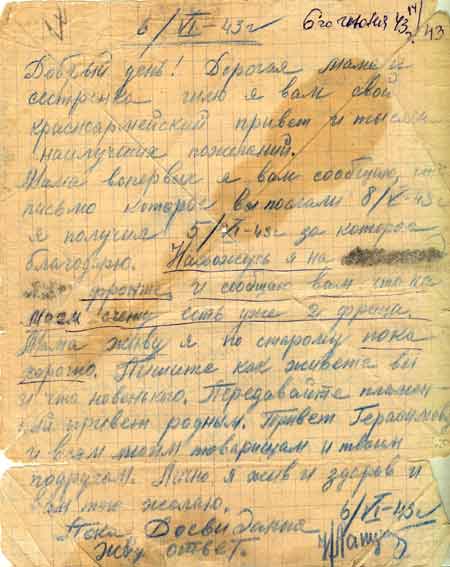 6/VI-43г
6го июня 43г.
Добрый день! Дорогая мама и
сестренка шлю я вам свой
красноармейский привет и тысячи
наилучших пожеланий.
Мама вопервых я вам сообщаю, что
письмо которое вы послали 8/V-43г
я получил 5/VI-43г за которое
благодарю. Нахожусь я на
фронте и сообщаю вам что на
моем счету есть уже 2 фрица.
Мама живу я по старому пока
хорошо. Пишите как живете вы
и что новенького. Передавайте пламен-
ый привет родным. Привет Герасимову
и всем моим товарищам и твоим
подругам. Лично я жив и здоров и
вам того желаю.
6/VI-43г
Пока Досвидания
Жду ответ.